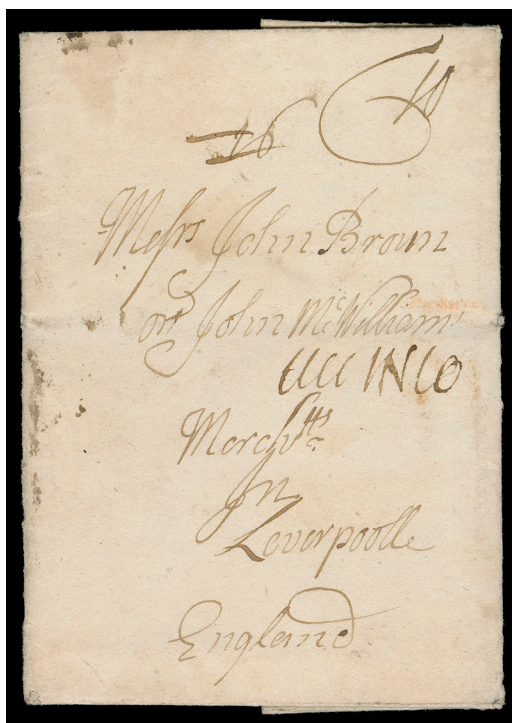 16 10
Messrs John Brown
or John McWilliam
In
Leverpoolle
England